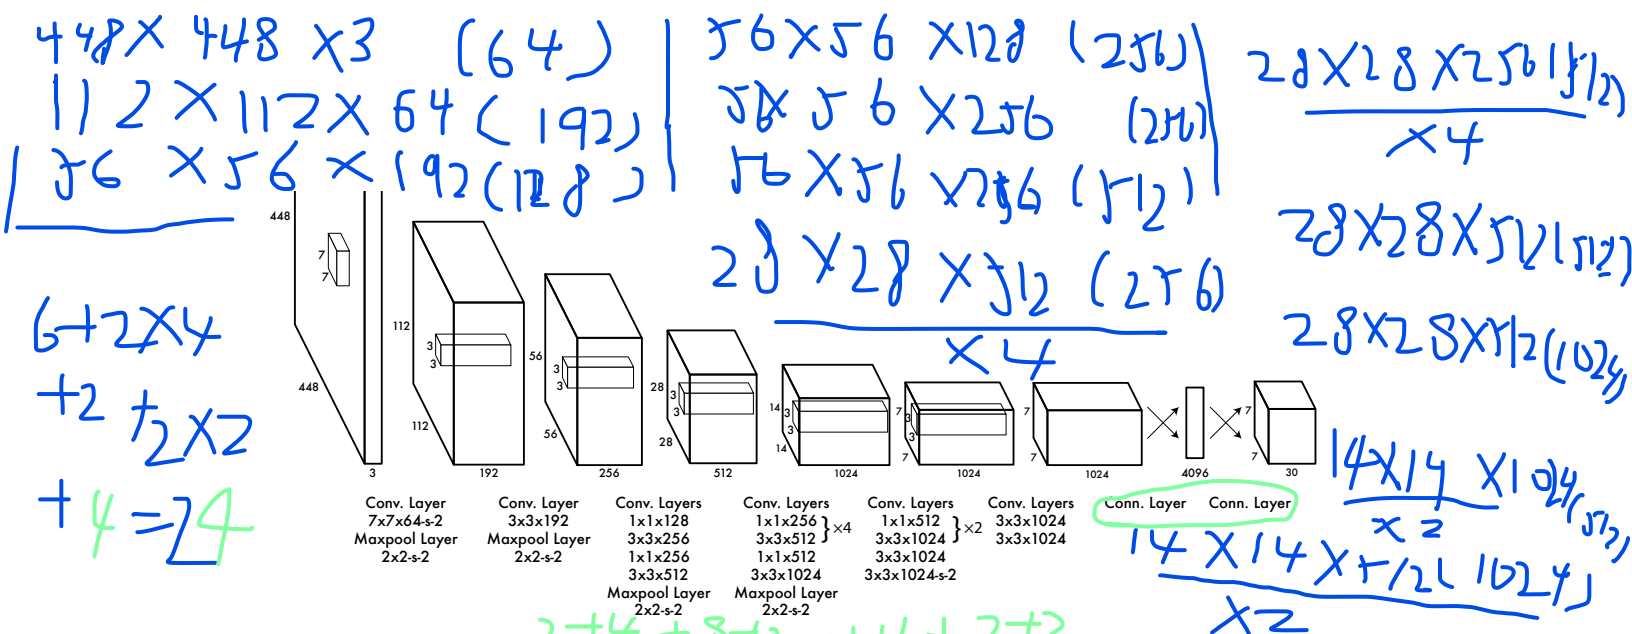 448X 448 X3 (64)
112 X 112 X 64 ( 192)
56 X 56 X 192 (128)
56 X 56 X 128 (256)
56X 56 X256 (256)
56 X 56 X256 (512)
28 X 28 X 512 (256)
X4
28 X 28 X 256 (512)
X4
28X28X512(512)
28X28X512(1024)
14X14 X1024(512)
X2
14 X14 X512( 1024)
X2
6+2X4
+2 +2X2
+ 4 = 24
448
7
7
448
3
112
3
3
112
192
56
3
3
56
256
28
3
3
28
512
14
3
3
14
1024
7
3
3
7
1024
7
7
1024
4096
7
7
30
Conv. Layer
7x7x64-s-2
Maxpool Layer
2x2-s-2
Conv. Layer
3x3x192
Maxpool Layer
2x2-s-2
Conv. Layers
1x1x128
3x3x256
1x1x256
3x3x512
Maxpool Layer
2x2-s-2
Conv. Layers
1x1x256
3x3x512
} ×4
1x1x512
3x3x1024
Maxpool Layer
2x2-s-2
Conv. Layers
1x1x512
3x3x1024
} ×2
3x3x1024
3x3x1024-s-2
Conv. Layers
3x3x1024
3x3x1024
Conn. Layer
Conn. Layer